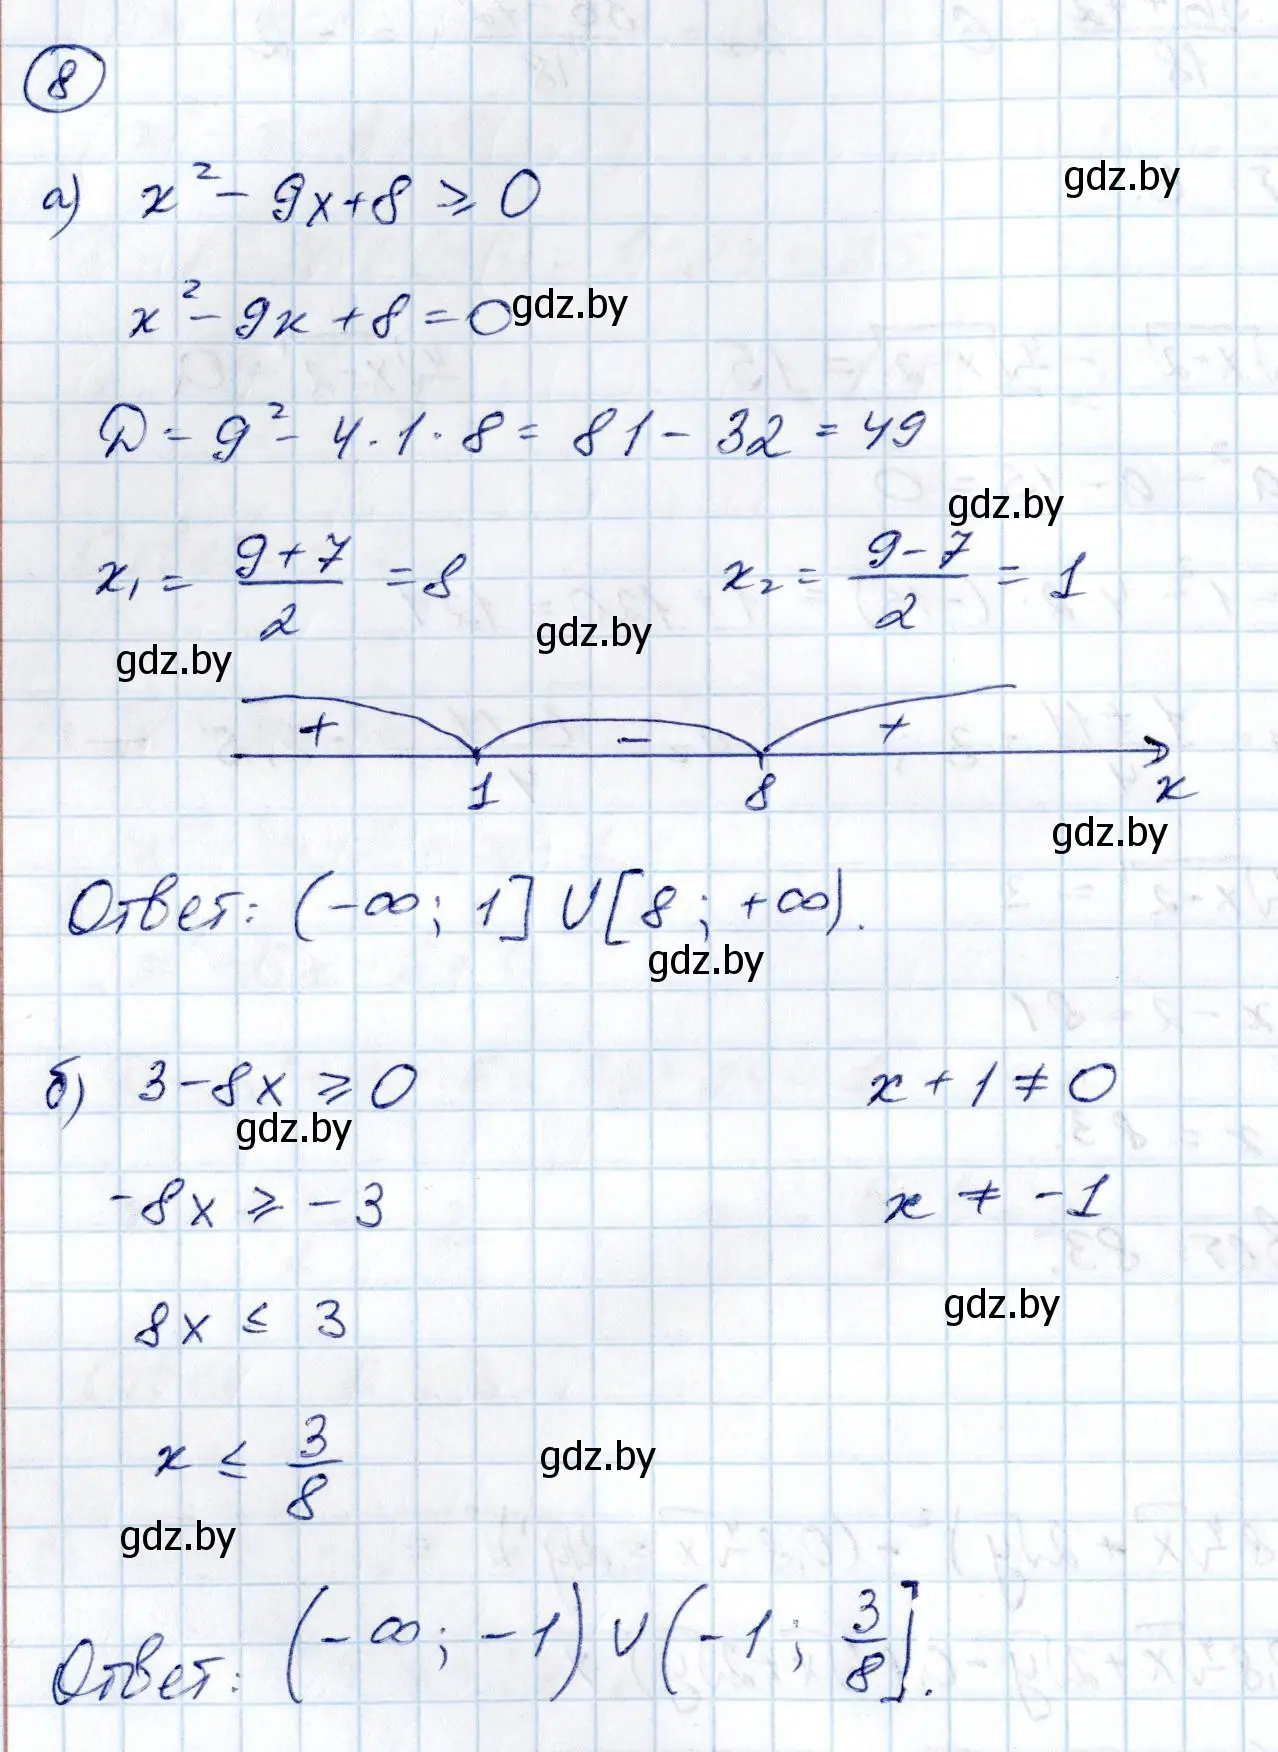 8
а) x² - 9x + 8 ⩾ 0
gdz.by
x² - 9x + 8 = 0
gdz.by
D = 9² - 4 · 1 · 8 = 81 - 32 = 49
gdz.by
x₁ = (9+7)/2 = 8 x₂ = (9-7)/2 = 1
gdz.by
gdz.by
+ - +
1 8 x
gdz.by
Ответ: (-∞; 1] ∪ [8; +∞).
gdz.by
б) 3 - 8x ⩾ 0 x + 1 ≠ 0
gdz.by
-8x ⩾ -3 x ≠ -1
gdz.by
8x ≤ 3
x ≤ 3/8
gdz.by
gdz.by
Ответ: (-∞; -1) ∪ (-1; 3/8].